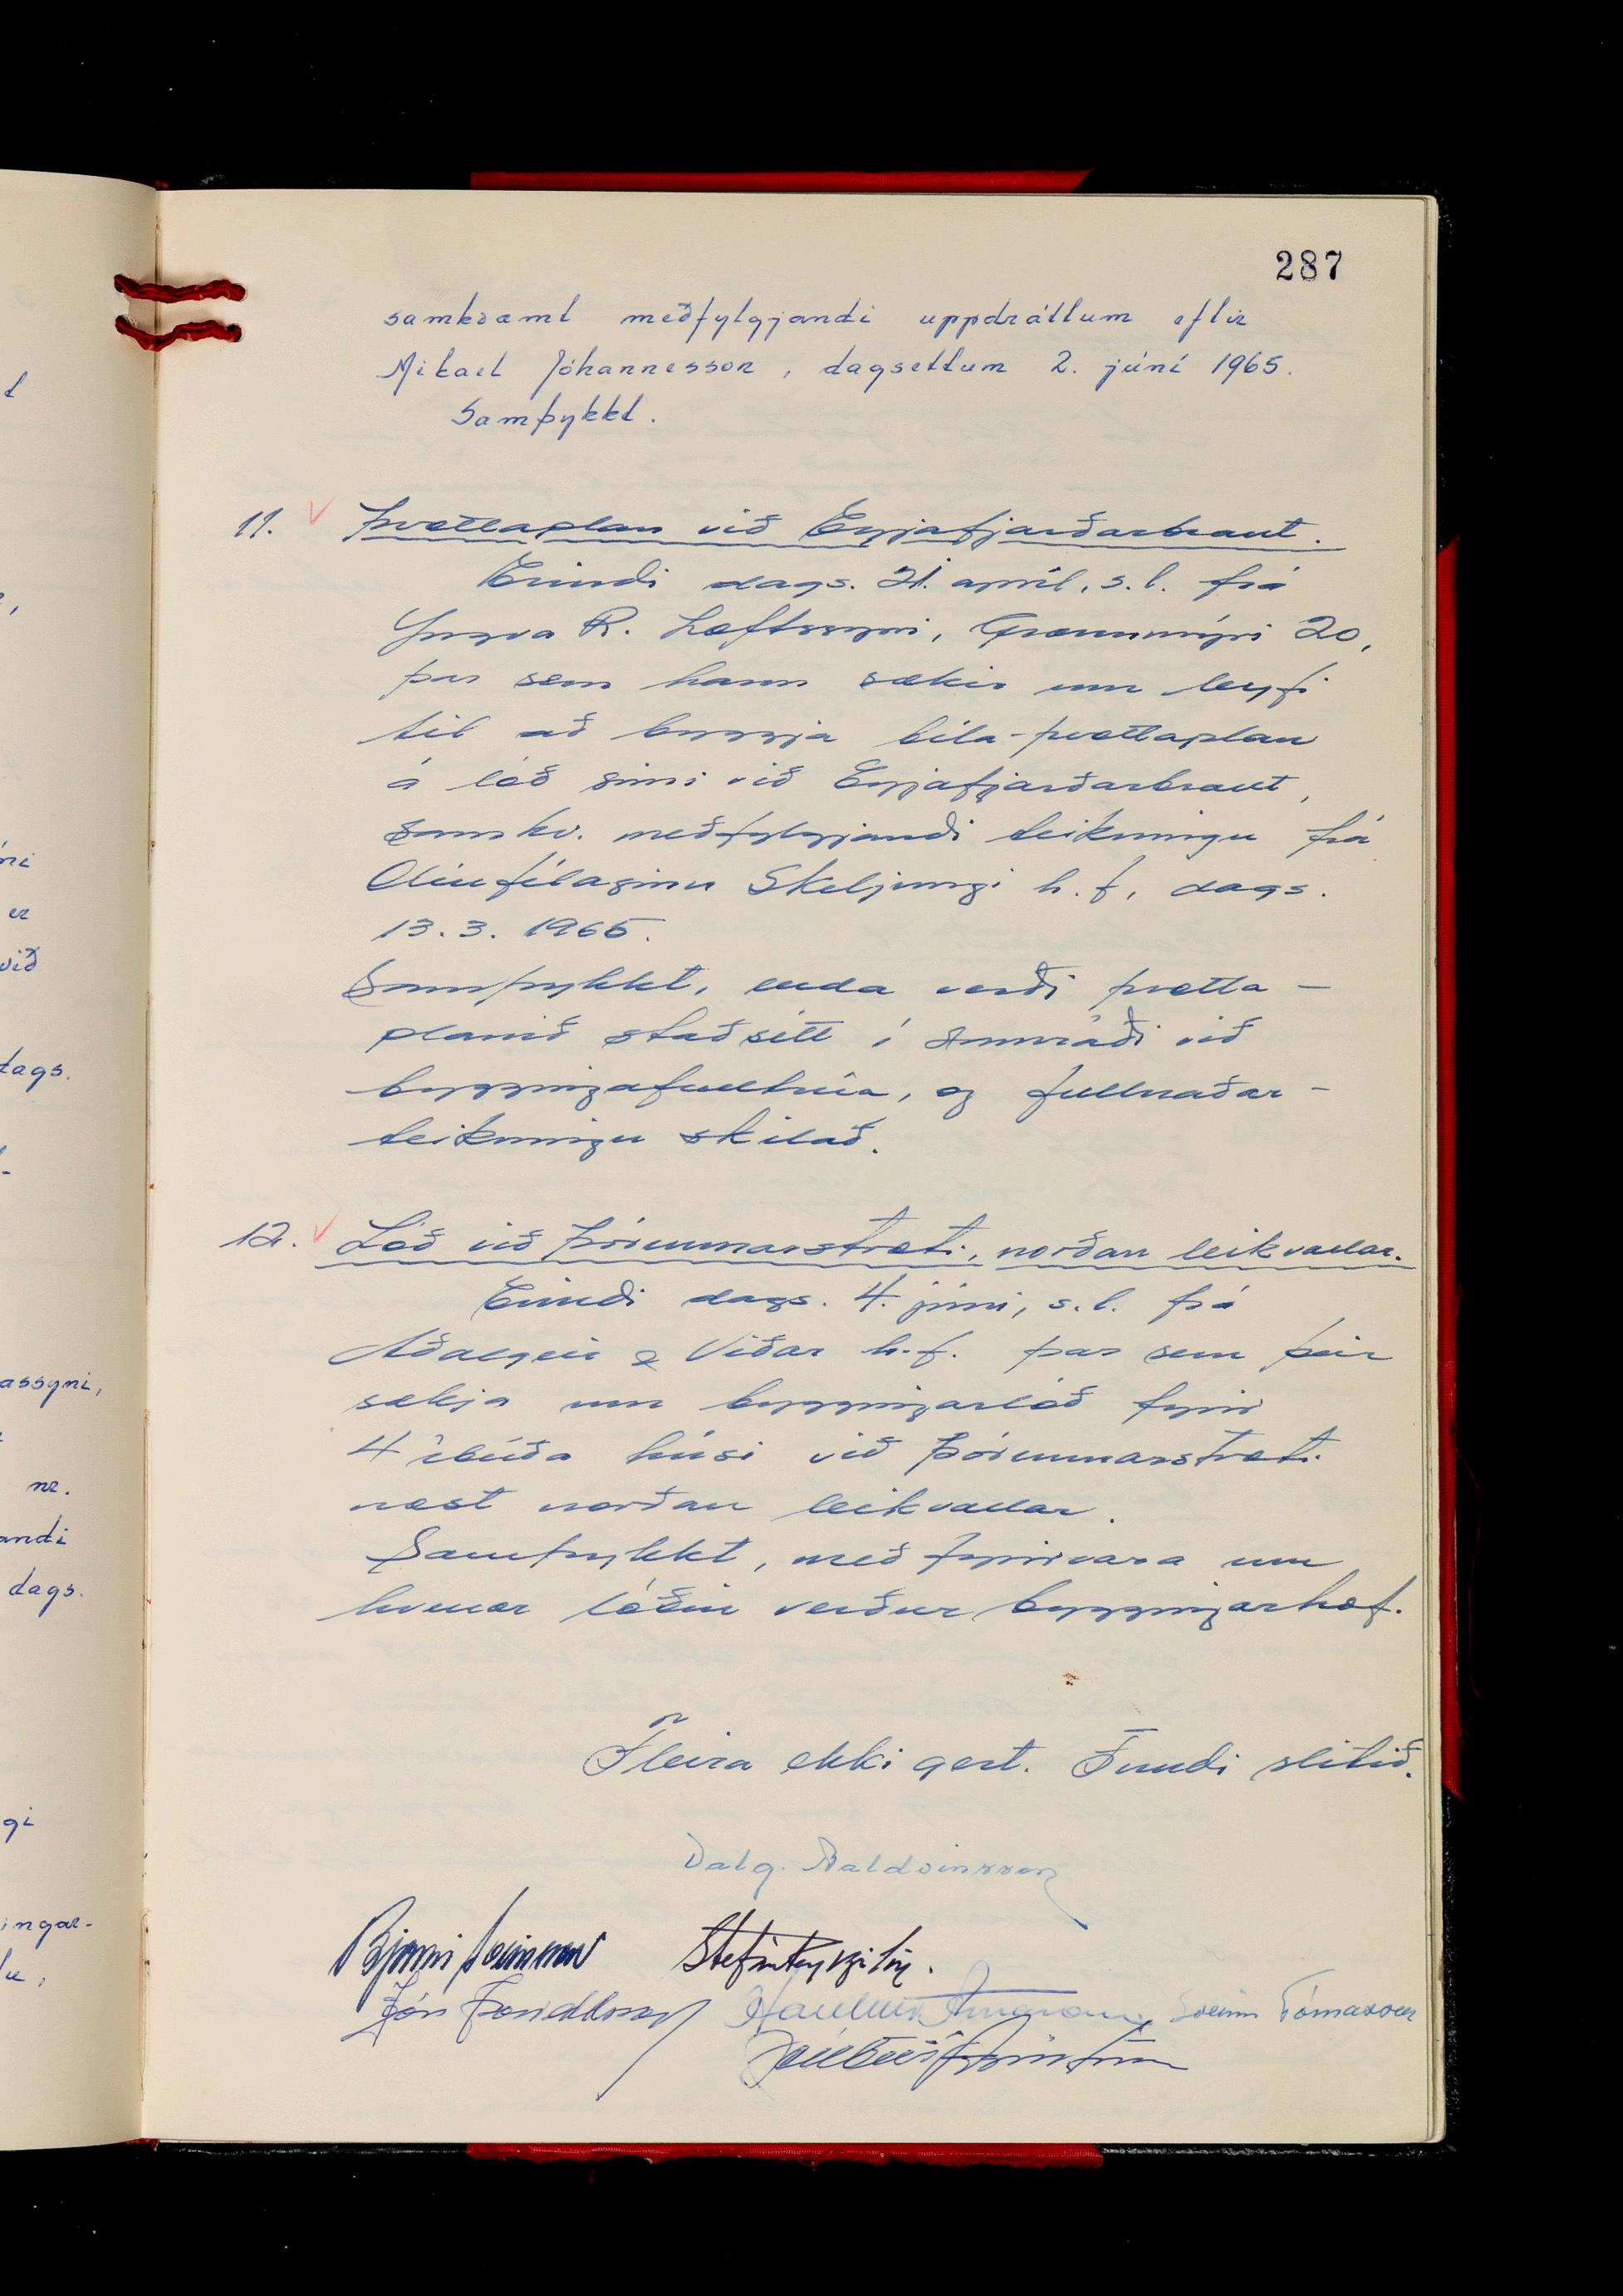 287
samkvæmt meðfylgjandi uppdráttum eftir
Mikael Jóhannesson, dagsettum 2. júní 1965.
Samþykkt.
11. Þvottaplan við Eyjafjarðarbraut.
Erindi dags. 21. apríl, s.l. frá
Yngva R. Loftssyni, Grænumýri 20,
þar sem hann sækir um leyfi
til að byggja bíla-þvottaplan
á lóð sinni við Eyjafjarðarbraut,
samkv. meðfylgjandi teikningu frá
Olíufélaginu Skeljungi h.f, dags.
13.3. 1965.
Samþykkt, enda verði þvotta-
planið staðsétt í samráði við
byggingafulltrúa, og fullnaðar-
teikningu skilað.
12. Lóð við Þórunnarstræti, norðan leikvallar.
Erindi dags. 4. júní, s.l. frá
Aðalgeir & Viðar h.f. þar sem þeir
sækja um byggingarlóð fyrir
4 íbúða húsi við Þórunnarstræti
næst norðan leikvallar.
Samþykkt, með fyrirvara um
hvenær lóðin verður byggingarhæf.
Fleira ekki gert. Fundi slitið.
Valg. Baldvinsson
Bjarni Einarsson Stefán
Jón Haukur Árnason Sveinn Tómasson
t
er
við
dags.
assyni,
nr.
andi
dags.
gi
ingar-